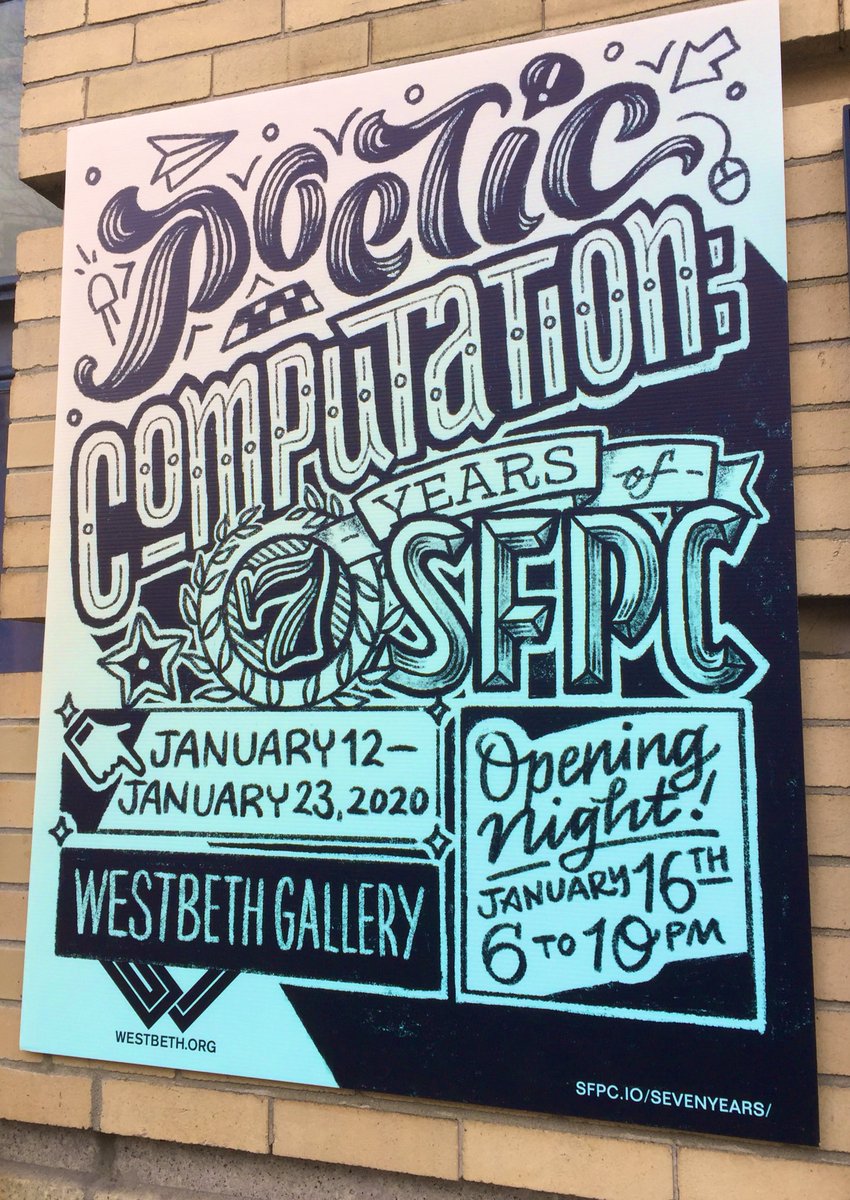 Poetic
Computation:
7 YEARS of
SFPC
JANUARY 12 –
JANUARY 23, 2020
WESTBETH GALLERY
WESTBETH.ORG
Opening
Night!
JANUARY 16TH
6 TO 10 PM
SFPC.IO/SEVENYEARS/